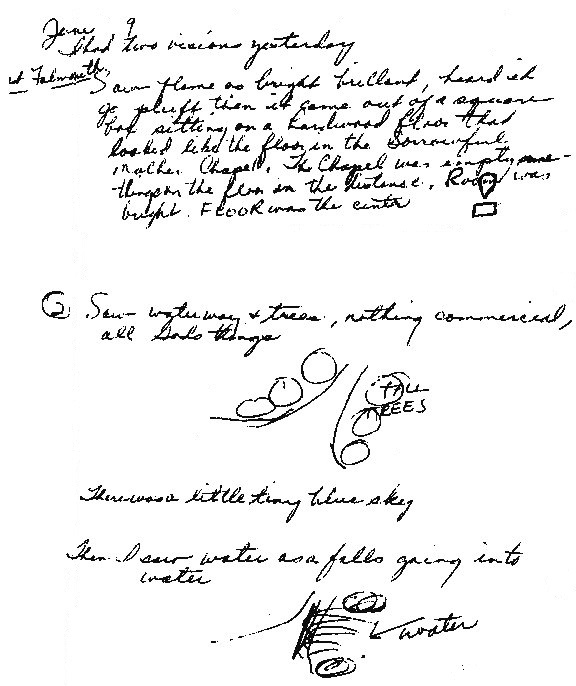 June 9
I had two visions yesterday
at Falmouth
Saw flame as bright brillant, heard it
go pluff then it came out of a square
box sitting on a hardwood floor that
looked like the floor in the Sorrowful
Mother Chapel. The Chapel was empty
things on the floor in the distance. Room was
bright. FLOOR was the center
② Saw waterway & trees, nothing commercial,
all Gods things
TALL
TREES
There was a little tiny blue sky
Then I saw water as a falls going into
water
water